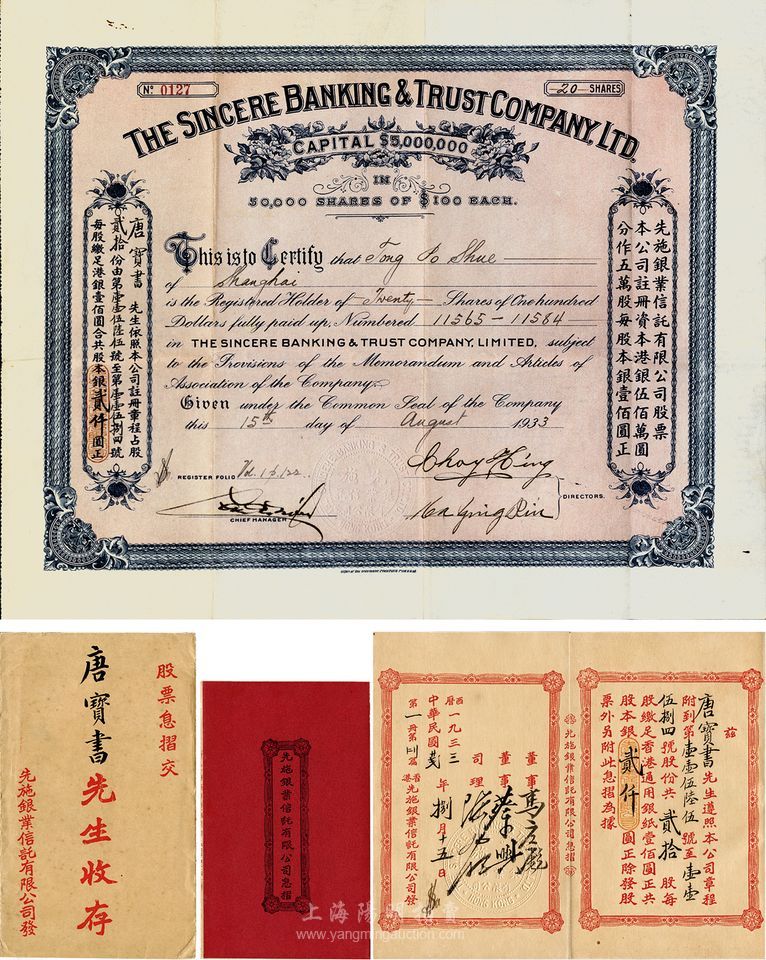 Nº 0127
20 SHARES
THE SINCERE BANKING & TRUST COMPANY, LTD.
CAPITAL $5,000,000
IN
50,000 SHARES OF $100 EACH.
This is to Certify that Tong Po Shue
of Shanghai
is the Registered Holder of Twenty Shares of One hundred
Dollars fully paid up, Numbered 11565 - 11584
in THE SINCERE BANKING & TRUST COMPANY, LIMITED, subject
to the Provisions of the Memorandum and Articles of
Association of the Company.
Given under the Common Seal of the Company
this 15th day of August 1933
REGISTER FOLIO
Choy Hing
Ma Ying Piu
DIRECTORS.
CHIEF MANAGER
先施銀業信託有限公司股票
本公司註冊資本港銀伍佰萬圓
分作五萬股每股本銀壹佰圓正
唐寶書 先生依照本公司註冊章程占股
貳拾份由第壹壹伍陸伍號至第壹壹伍捌四號
每股繳足港銀壹佰圓合共股本銀貳仟圓正
股票息摺交
唐寶書先生收存
先施銀業信託有限公司發
先施銀業信託有限公司息摺
茲
唐寶書先生遵照本公司章程
附到第壹壹伍陸伍號至壹壹
伍捌四號股份共貳拾股每
股繳足香港通用銀紙壹佰圓正共
股本銀貳仟圓正除發股
票外另附此息摺為據
先施銀業信託有限公司息摺
董事 馬應彪
董事 蔡興
司理
西曆一九三三
中華民國 年捌月十五日
先施銀業信託有限公司發
上海陽明拍賣
www.yangmingauction.com